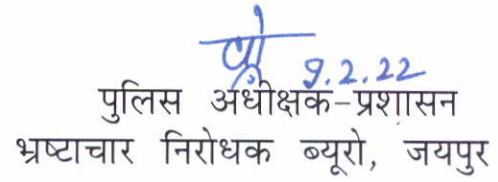 9.2.22
पुलिस अधीक्षक-प्रशासन
भ्रष्टाचार निरोधक ब्यूरो, जयपुर